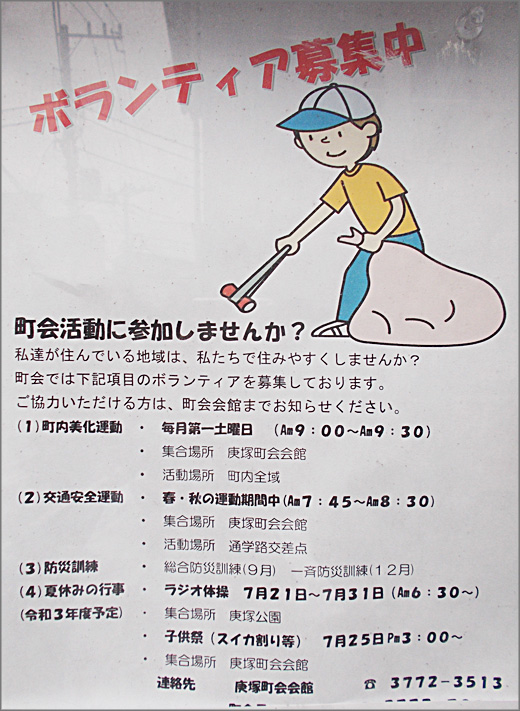 ボランティア募集中
町会活動に参加しませんか？
私達が住んでいる地域は、私たちで住みやすくしませんか？
町会では下記項目のボランティアを募集しております。
ご協力いただける方は、町会会館までお知らせください。
(1)町内美化運動 ・ 毎月第一土曜日 (Am9：00〜Am9：30)
・ 集合場所 庚塚町会会館
・ 活動場所 町内全域
(2)交通安全運動 ・ 春・秋の運動期間中(Am7：45〜Am8：30)
・ 集合場所 庚塚町会会館
・ 活動場所 通学路交差点
(3)防災訓練 ・ 総合防災訓練(9月) 一斉防災訓練(12月)
(4)夏休みの行事 ・ ラジオ体操 7月21日〜7月31日(Am6：30〜)
(令和3年度予定) ・ 集合場所 庚塚公園
・ 子供祭(スイカ割り等) 7月25日Pm3：00〜
・ 集合場所 庚塚町会会館
連絡先 庚塚町会会館 ☎ 3772-3513